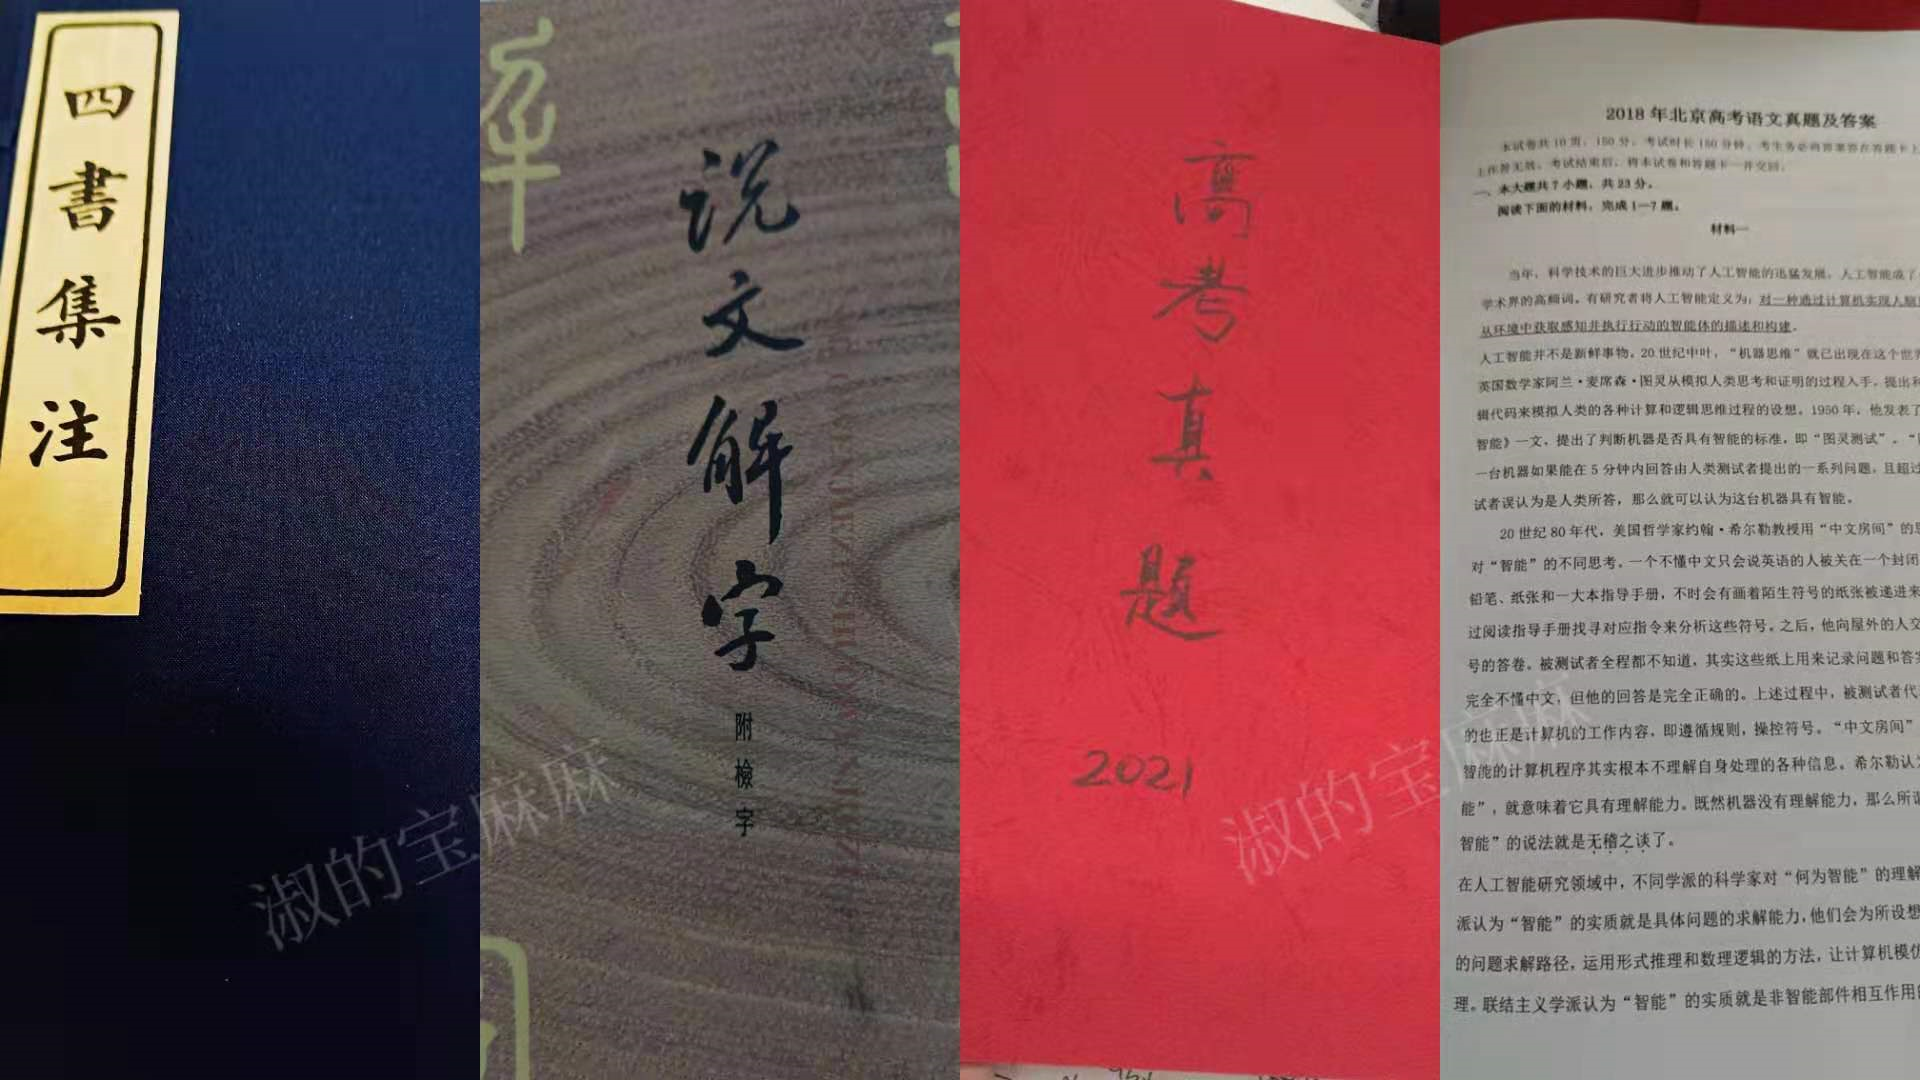 四書集注
说文解字
附檢字
高考真题
2021
2018年北京高考语文真题及答案
本试卷共10页，150分。考试时长150分钟。考生务必将答案答在答题卡上
上作答无效。考试结束后，将本试卷和答题卡一并交回。
一、本大题共7小题，共23分。
阅读下面的材料，完成1—7题。
材料一
当年，科学技术的巨大进步推动了人工智能的迅猛发展，人工智能成了
学术界的高频词。有研究者将人工智能定义为：对一种通过计算机实现人脑
从环境中获取感知并执行行动的智能体的描述和构建。
人工智能并不是新鲜事物。20世纪中叶，“机器思维”就已出现在这个世
英国数学家阿兰·麦席森·图灵从模拟人类思考和证明的过程入手，提出利
辑代码来模拟人类的各种计算和逻辑思维过程的设想。1950年，他发表了
智能》一文，提出了判断机器是否具有智能的标准，即“图灵测试”。“
一台机器如果能在5分钟内回答由人类测试者提出的一系列问题，且超过
试者误认为是人类所答，那么就可以认为这台机器具有智能。
20世纪80年代，美国哲学家约翰·希尔勒教授用“中文房间”的思
对“智能”的不同思考。一个不懂中文只会说英语的人被关在一个封闭
铅笔、纸张和一大本指导手册，不时会有画着陌生符号的纸张被递进来
过阅读指导手册找寻对应指令来分析这些符号。之后，他向屋外的人交
号的答卷。被测试者全程都不知道，其实这些纸上用来记录问题和答案
完全不懂中文，但他的回答是完全正确的。上述过程中，被测试者代
的也正是计算机的工作内容，即遵循规则，操控符号。“中文房间”
智能的计算机程序其实根本不理解自身处理的各种信息。希尔勒认
能”，就意味着它具有理解能力。既然机器没有理解能力，那么所谓
智能”的说法就是无稽之谈了。
在人工智能研究领域中，不同学派的科学家对“何为智能”的理解
派认为“智能”的实质就是具体问题的求解能力，他们会为所设想
的问题求解路径，运用形式推理和数理逻辑的方法，让计算机模仿
理。联结主义学派认为“智能”的实质就是非智能部件相互作用的
淑的宝麻麻
淑的宝麻麻